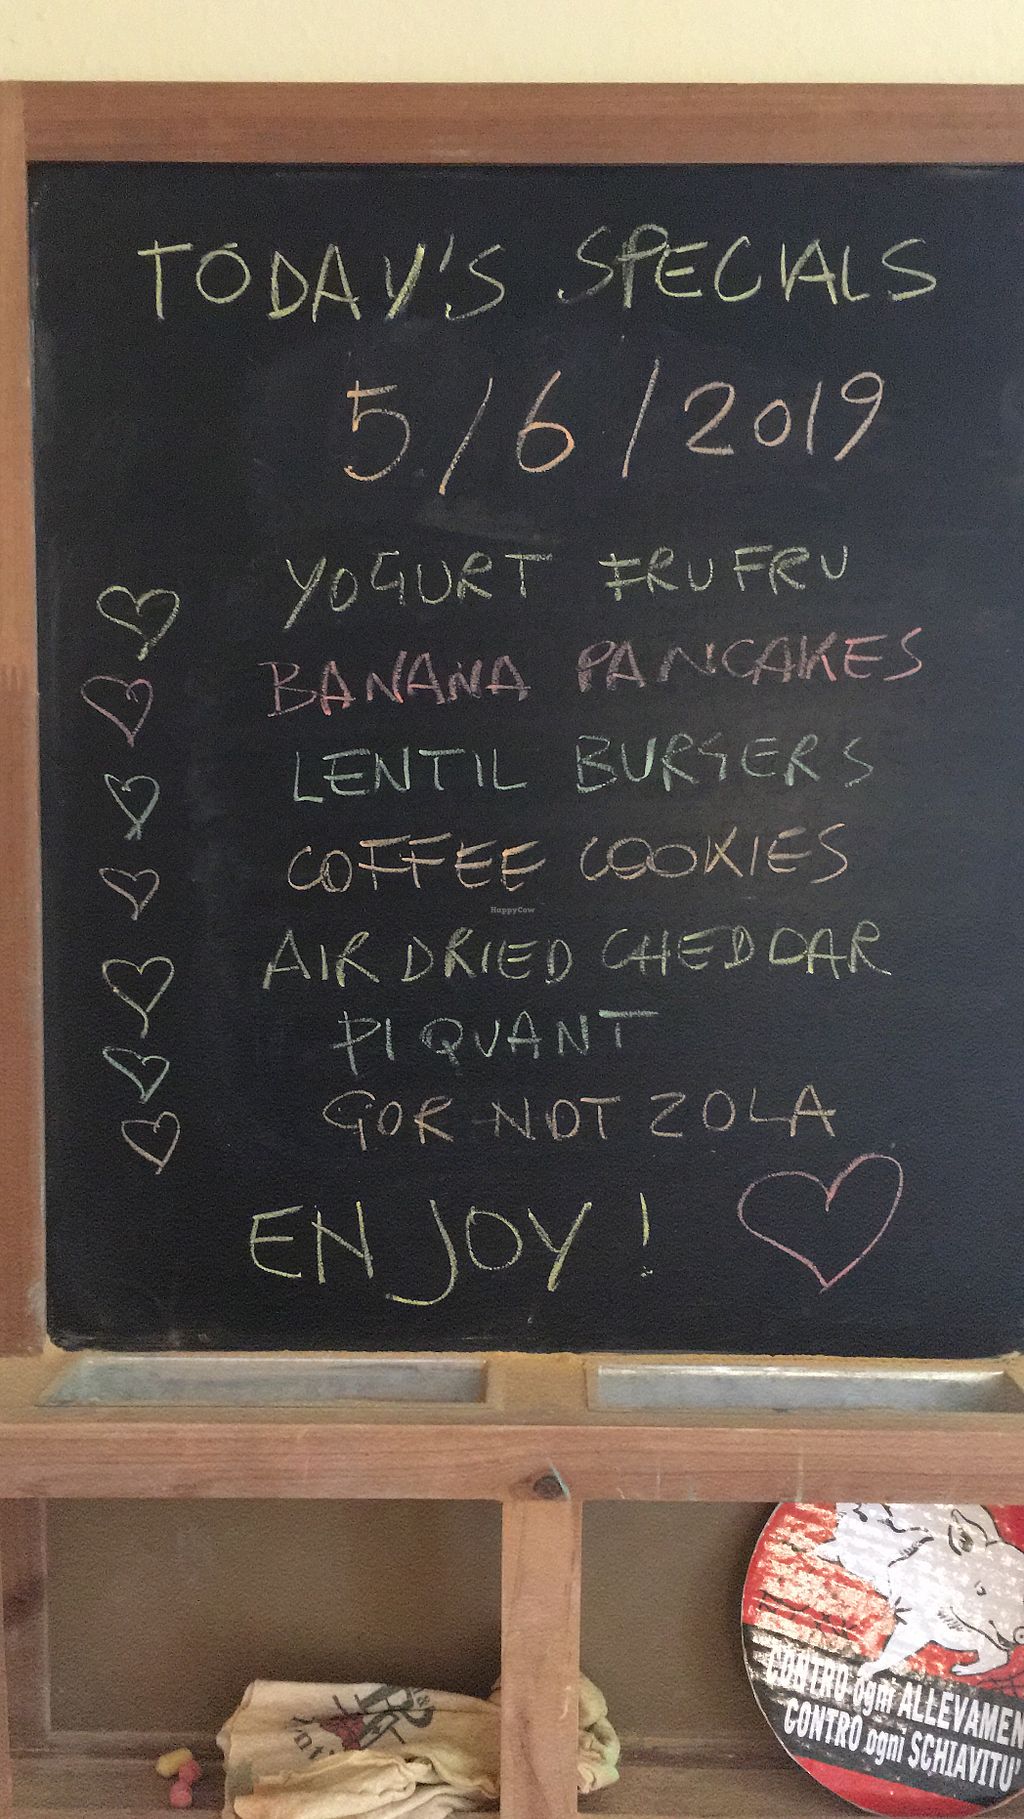 TODAY'S SPECIALS
5/6/2019
YOGURT FRUFRU
BANANA PANCAKES
LENTIL BURGERS
COFFEE COOKIES
HappyCow
AIR DRIED CHEDDAR
PIQUANT
GOR-NOT ZOLA
ENJOY!
CONTRO ogni ALLEVAMEN
CONTRO ogni SCHIAVITU'